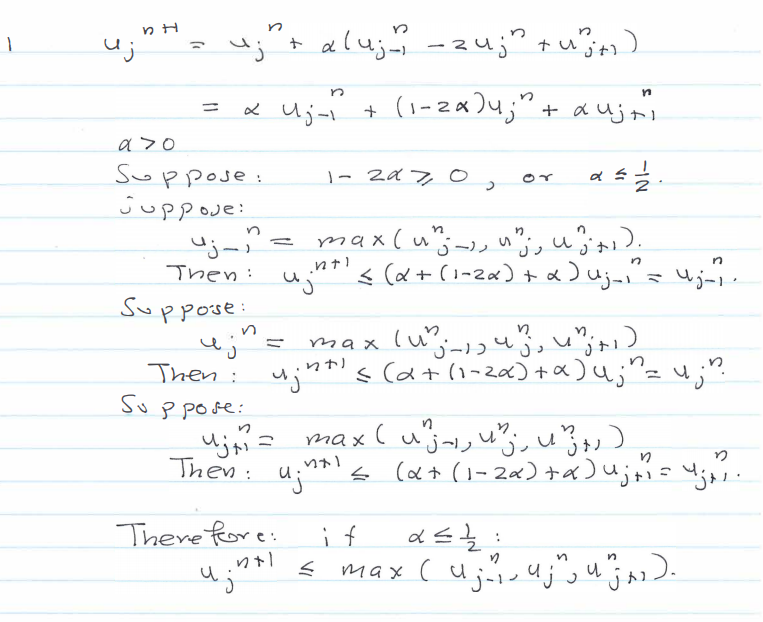 1 u_j^{n+1} = u_j^n + α(u_{j-1}^n - 2u_j^n + u_{j+1}^n)
= α u_{j-1}^n + (1-2α)u_j^n + α u_{j+1}^n
α > 0
Suppose: 1 - 2α ≥ 0, or α ≤ 1/2.
Suppose:
u_{j-1}^n = max(u_{j-1}^n, u_j^n, u_{j+1}^n).
Then: u_j^{n+1} ≤ (α + (1-2α) + α) u_{j-1}^n = u_{j-1}^n.
Suppose:
u_j^n = max(u_{j-1}^n, u_j^n, u_{j+1}^n)
Then: u_j^{n+1} ≤ (α + (1-2α) + α) u_j^n = u_j^n.
Suppose:
u_{j+1}^n = max(u_{j-1}^n, u_j^n, u_{j+1}^n)
Then: u_j^{n+1} ≤ (α + (1-2α) + α) u_{j+1}^n = u_{j+1}^n.
Therefore: if α ≤ 1/2 :
u_j^{n+1} ≤ max(u_{j-1}^n, u_j^n, u_{j+1}^n).